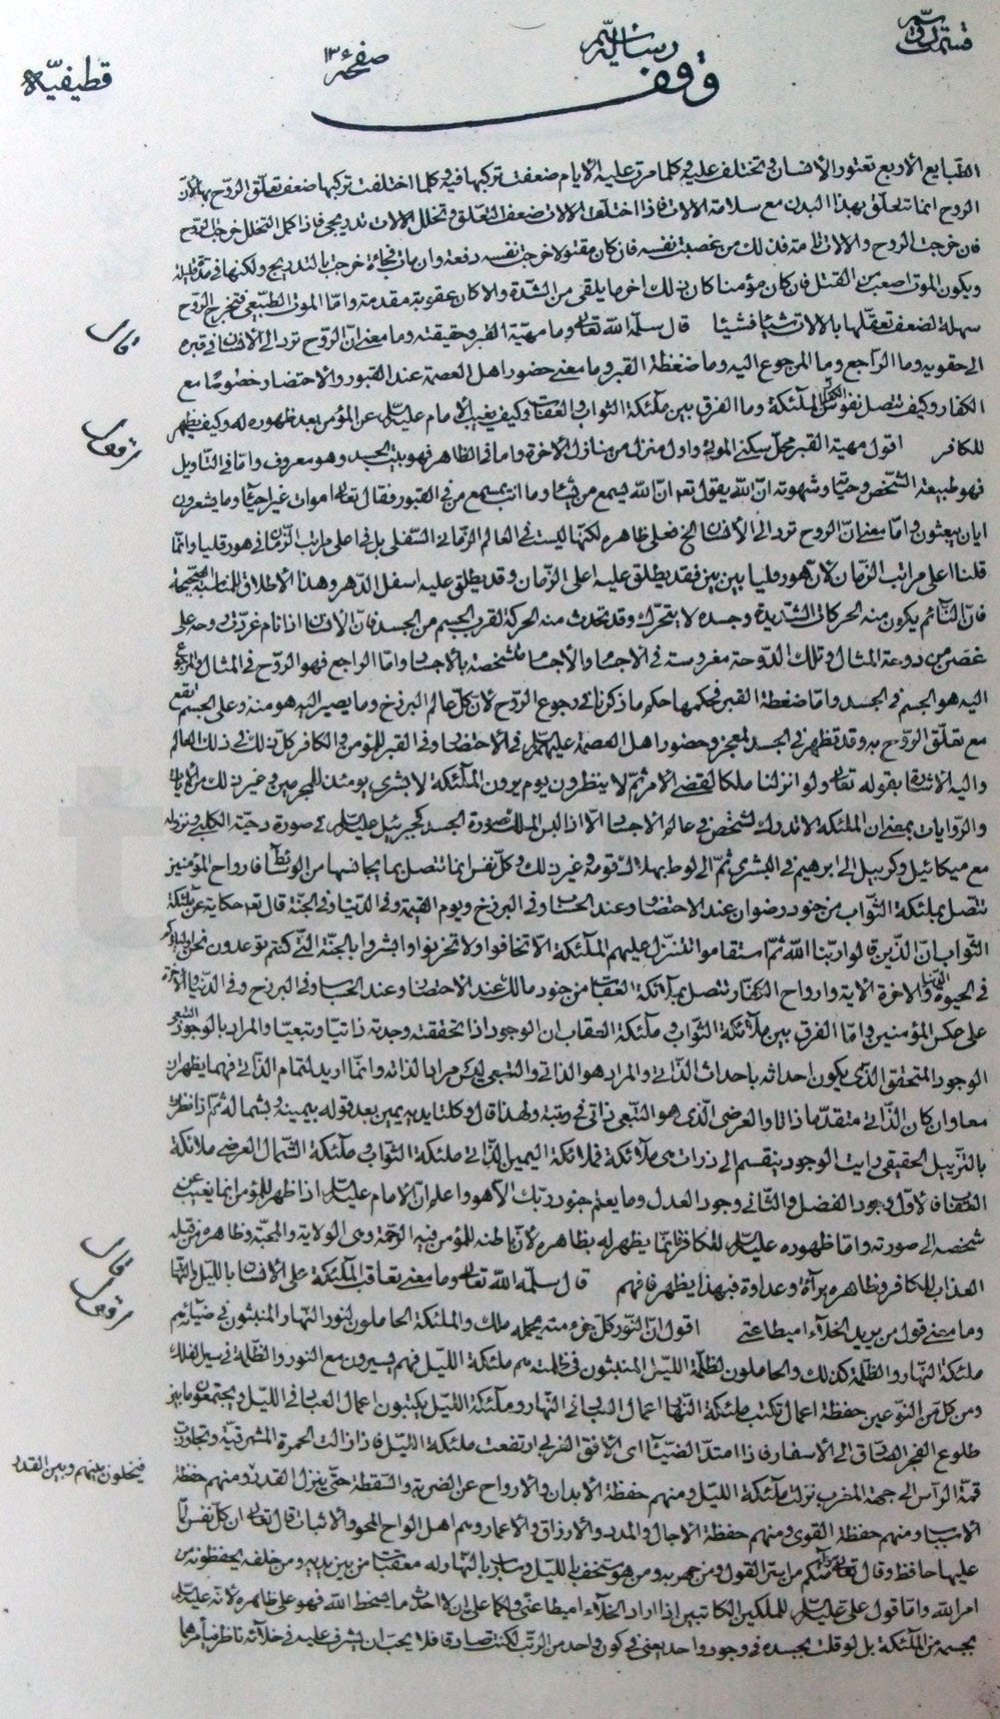 قسمت
رسالة
صفحه ١٣٤
قطيفيّه
وقف
الطبايع الأربع تعتور الأنسان وتختلف عليه وكلما مرت عليه الأيام ضعفت تركبها فيه وكلما اختلفت تركبها ضعف تعلّق الرّوح بها لأنّ
الروح انما تتعلّق بهذا البدن مع سلامة الالات فاذا اختلّت الالات ضعف التّعلّق وتحلّل الالات تدريجى فاذا كمل التحلل خرجت الروح
فان خرجت الروح والالات تامة فذلك من غصبت نفسه فان كان مقتولا خرجت نفسه دفعة وان مات فجأة خرجت بالتدريج ولكنها فى مدة قليلة
ويكون الموت اصعب من القتل فان كان مؤمنا كان ذلك اخر ما يلقى من الشّدّة والا كان عقوبة مقدمة وامّا الموت الطّبيعى فتخرج الروح
سهلة لضعف تعلّقها بالالات شيئا فشيئا قال سلّمه اللّه تعالى وما مهيّة القبر وحقيقته وما معنى انّ الرّوح تردّ الى الأنسان فى قبره
قال
الى حقويه وما الرّاجع وما المرجوع اليه وما ضغطة القبر وما معنى حضور اهل العصمة عند القبور والاحتضار خصوصًا مع
الكفار وكيف تتصل نفوس الملئكة وما الفرق بين ملئكة الثواب والعقاب وكيف يغيب الامام عليه السلام عن المؤمن بعد ظهوره له وكيف يظهر
للكافر اقول مهيّة القبر محلّ سكنى الموتى واول منزل من منازل الأخرة واما فى الظاهر فهو بيت الجسد وهو معروف وامّا فى التّأويل
فهو طبيعة الشّخص وحيّاته وشهوته انّ اللّه يقول تعه انّ اللّه يسمع من يشاء وما انت بمسمع من فى القبور وقال تعالى اموات غير احياء وما يشعرون
ايان يبعثون وامّا معنى انّ الروح تردّ الى الأنسان الخ فعلى ظاهره لكنّها ليست فى العالم الزّمانى السّفلى بل فى اعلى مراتب الزّمان فى هورقليا وانّما
قلنا اعلى مراتب الزّمان لانّ هورقليا بين بين فقد يطلق عليه اعلى الزّمان وقد يطلق عليه اسفل الدّهر وهذا الأطلاق للمناسبة صحيحة
فانّ النّائم يكون منه الحركات الشّديدة وجسده لا يتحرّك وقد تحدث منه الحركة لقرب الجسم من الجسد فانّ الأنسان اذا نام غرّدت روحه على
غصن من دوحة المثال وتلك الدّوحة مغروسة فى الاجسام والأجسام متشخّصة بالأجساد وامّا الراجع فهو الروح فى المثال والمرجوع
اليه هو الجسم فى الجسد وامّا ضغطة القبر فحكمها حكم ما ذكرنا فى رجوع الرّوح لان كلّ عالم البرزخ وما يصير اليه هو منه وعلى الجسم تقع
مع تعلّق الرّوح به وقد تظهر فى الجسد لمعجز وحضور اهل العصمة عليهم السلام فى الأحتضار وفى القبر للمؤمن والكافر كلّ ذلك فى ذلك العالم
واليه الاشارة بقوله تعالى ولو انزلنا ملكا لقضى الامر ثمّ لا ينظرون يوم يرون الملئكة لا بشرى يومئذ للمجرمين وغير ذلك من الايات
والرّوايات بمعنى ان الملئكة لا تدرك لشخص فى عالم الاجساد الا اذا لبس الملك صورة الجسد كجبرئيل عليه السلام فى صورة دحية الكلبى ونزوله
مع ميكائيل وكربيل الى ابرهيم فى البشرى ثمّ الى لوط بهلاك قومه وغير ذلك وكلّ نفس انما تتصل بما يجانسها من الوسائط فارواح المؤمنين
تتصل بملئكة الثّواب من جنود رضوان عند الاحتضار وعند الحساب وفى البرزخ ويوم القيمة وفى الدّنيا وفى الجنّة قال تعه حكاية عن ملئكة
الثّواب انّ الّذين قالوا ربّنا اللّه ثمّ استقاموا تتنزل عليهم الملئكة الاّ تخافوا ولا تحزنوا وابشروا بالجنّة التى كنتم توعدون نحن اولياؤكم
فى الحيوة الدّنيا والاخرة الاية وارواح الكفّار تتصل بملئكة العقاب من جنود مالك عند الاحتضار وعند الحساب وفى البرزخ وفى الدّنيا والاخرة
على عكس المؤمنين وامّا الفرق بين ملائكة الثّواب وملئكة العقاب ان الوجود اذا تحققته وجدته ذاتيّا وتبعيّا والمراد بالوجود التّبعى
الوجود المتحقق الذى يكون احداثه باحداث الذّاتى والمراد هو الذاتى والتبعى ليس مرادا لذاته وانّما اريد لتمام الذّاتى فهما يظهران
معا وان كان الذّاتى متقدّما ذاتا والعرضى الّذى هو التّبعى ذاتى فى رتبة ولهذا قال وكلتا يديه يمين بعد قوله بيمينه بشماله ثمّ اذا نظرت
بالتّزييل الحقيقى رايت الوجود ينقسم الى ذرات هى ملائكة فملائكة اليمين الذّاتى ملئكة الثواب وملئكة الشّمال العرضى ملائكة
العقاب فالأوّل وجود الفضل والثّانى وجود العدل وما يعلم جنود ربّك الاّ هو واعلم انّ الامام عليه السلام اذا ظهر للمؤمن انما يغيب عن
شخصه الى صورته وامّا ظهوره عليه السلام للكافر فانّما يظهر له بظاهره لأنّ باطنه للمؤمن فيه الرّحمة وهى الولاية والمحبّة وظاهره من قبله
العذاب للكافر وظاهره برآءة وعداوة فبهذا يظهر فافهم قال سلّمه اللّه تعالى وما معنى تعاقب الملئكة على الانسان بالليل والنّهار
قال
وما معنى قول من يريد الخلآء اميطا عنى اقول انّ النّور كلّ جزء منه يحمله ملك والملئكة الحاملون لنور النّهار المنبثّون فى ضيائه هم
ملئكة النّهار والظّلمة كذلك والحاملون لظلمة اللّيل المنبثّون فى ظلمته هم ملئكة اللّيل فهم يسيرون مع النّور والظّلمة فى سير الفلك
ومن كل من النّوعين حفظة اعمال تكتب ملئكة النّهار اعمال العباد فى النّهار وملئكة اللّيل يكتبون اعمال العباد فى اللّيل ويجتمعون ما بين
طلوع الفجر الصّادق الى الاسفار فاذا امتدّ الضّياء الى الافق الغربى ارتفعت ملئكة اللّيل فاذا زالت الحمرة المشرقيّة وتجاوزت
قمّة الرّأس الى جهة المغرب نزلت ملائكة اللّيل ومنهم حفظة الابدان والأرواح عن الضربة والسّقطة حتّى ينزل القدر ومنهم حفظة
فيخلون بينهم وبين القدر
الأسباب ومنهم حفظة القوى ومنهم حفظة الاجال والمدد والأرزاق والأعمار وهم اهل الواح المحو والاثبات قال تعالى ان كلّ نفس لمّا
عليها حافظ وقال تعالى سواء منكم من اسرّ القول ومن جهر به ومن هو مستخف باللّيل وسارب بالنّهار له معقبات من بين يديه ومن خلفه يحفظونه من
امر اللّه وامّا قول علىّ عليه السلام للملكين الكاتبين اذا اراد الخلآء اميطا عنى ولكما علىّ ان لا احدث ما يسخط اللّه فهو على ظاهره لانّه عليه السلام
بجسمه من الملئكة بل لو قلت بجسده فى وجود واحد يعنى فى كون واحد من الرّتب لكنت صادقا فلا يحبّ ان يشرف عليه فى خلآئه ناظر فيأمرهما